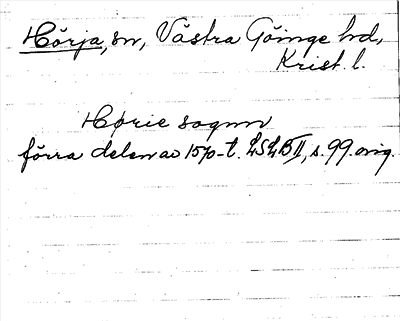 Hörja, sn, Västra Göinge hd,
Krist. l.
Hørie sogn
förra delen av 1570-t. LSLB II, s. 99. orig.